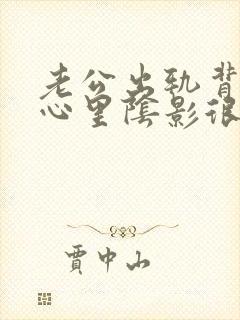 老公出轨背
心里阴影很
贾中山